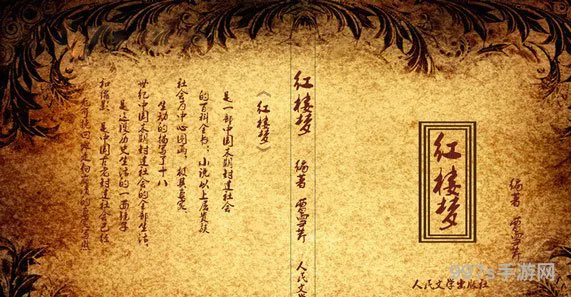 《红楼梦》
是一部中国末期封建社会
的百科全书。小说以上层贵族
社会为中心图画，极其真实
生动的描写了十八
世纪中国末期封建社会的全部生活。
是这段历史生活的一面镜子
和缩影，是中国古老封建社会已经
无可挽回地走向崩溃的真实写照。
红楼梦 编著 曹雪芹 人民文
红楼梦
编著 曹雪芹
人民文学出版社
997s手游网